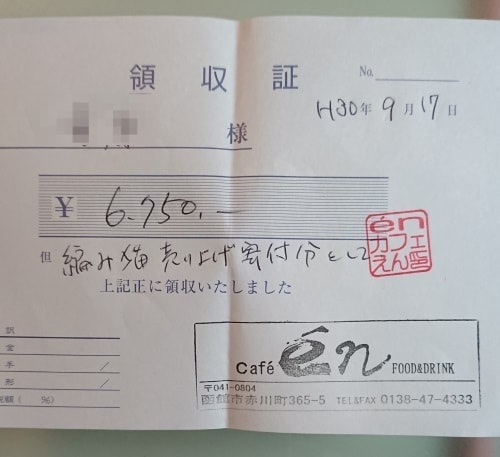 領収証
No.
H30年 9月 17日
様
¥ 6,750.-
但 編み猫 売り上げ寄付分として
上記正に領収いたしました
én
カフェ
えん
Café én FOOD&DRINK
〒041-0804
函館市赤川町365-5 TEL&FAX 0138-47-4333
訳
金
手 /
形 /
税額( %)